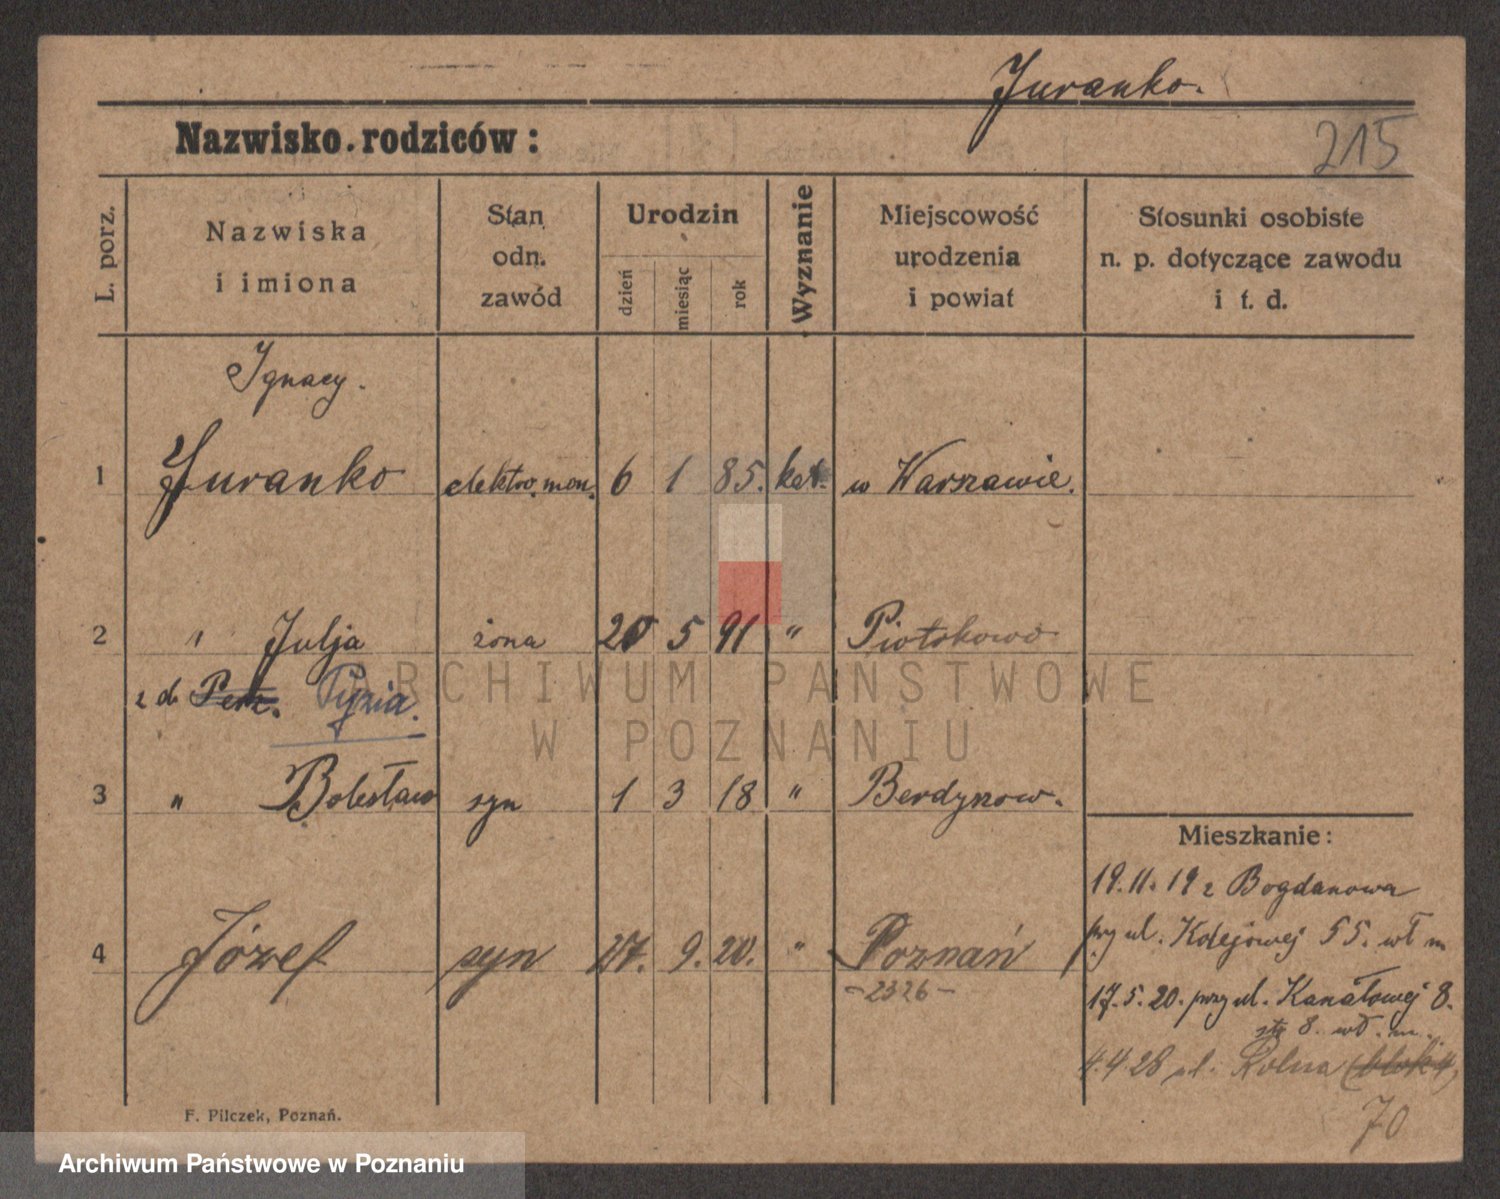 Juranko.
Nazwisko rodziców:
215
L. porz.
Nazwiska
i imiona
Stan
odn.
zawód
Urodzin
dzień
miesiąc
rok
Wyznanie
Miejscowość
urodzenia
i powiat
Stosunki osobiste
n. p. dotyczące zawodu
i t. d.
Ignacy.
1 Juranko elektro.mon. 6 1 85. kat. w Warszawie.
2 " Julja żona 20 5 91 " Piotrkowo
z d. Pyzia.
3 " Bolesław syn 1 3 18 " Berdyzow.
Mieszkanie:
19.11.19 z Bogdanowa
przy ul. Kolejowej 55. wł m
4 Józef syn 27. 9. 20. " Poznań
-2326-
17.5.20. przy ul. Kanałowej 8.
str 8. wł. m.
4.4.28 ul. Rolna (blok 4)
70
F. Pilczek, Poznań.
ARCHIWUM PAŃSTWOWE
W POZNANIU
Archiwum Państwowe w Poznaniu